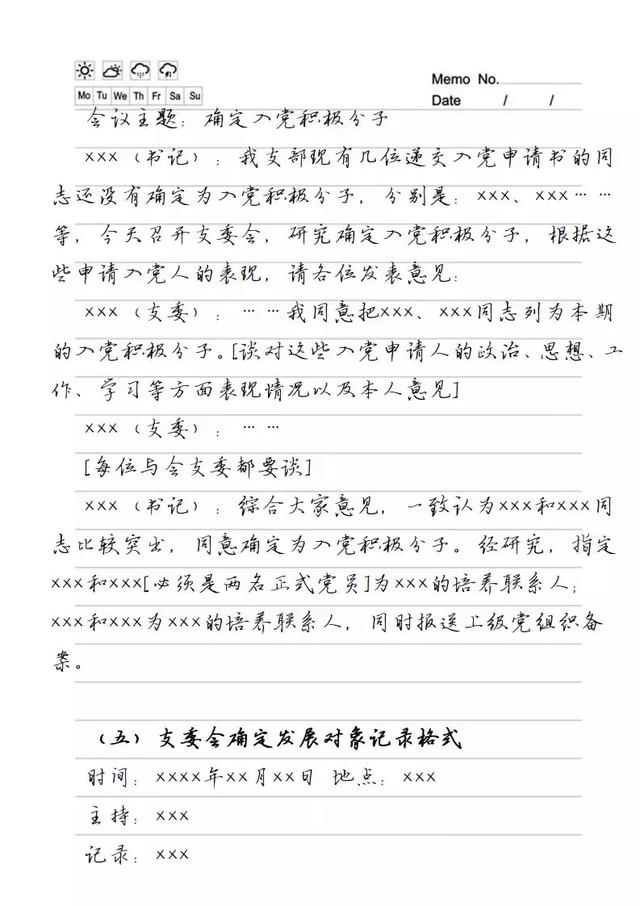 Memo No.
Mo Tu We Th Fr Sa Su
Date / /
会议主题：确定入党积极分子
×××（书记）：我支部现有几位递交入党申请书的同
志还没有确定为入党积极分子，分别是：×××、×××……
等，今天召开支委会，研究确定入党积极分子，根据这
些申请入党人的表现，请各位发表意见：
×××（支委）：……我同意把×××、×××同志列为本期
的入党积极分子。[谈对这些入党申请人的政治、思想、工
作、学习等方面表现情况以及本人意见]
×××（支委）：……
[每位与会支委都要谈]
×××（书记）：综合大家意见，一致认为×××和×××同
志比较突出，同意确定为入党积极分子。经研究，指定
×××和×××[必须是两名正式党员]为×××的培养联系人；
×××和×××为×××的培养联系人，同时报送上级党组织备
案。
（五）支委会确定发展对象记录格式
时间：××××年××月××日 地点：×××
主持：×××
记录：×××